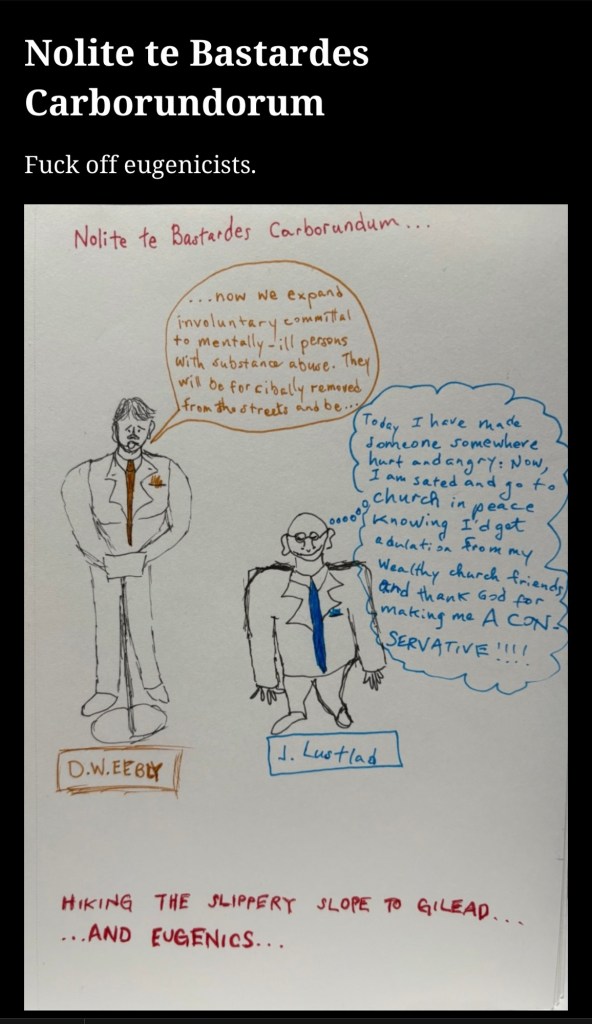 Nolite te Bastardes
Carborundorum
Fuck off eugenicists.
Nolite te Bastardes Carborundum...
...now we expand
involuntary committal
to mentally-ill persons
with substance abuse. They
will be forcibally removed
from the streets and be...
Today I have made
someone somewhere
hurt and angry: Now,
I am sated and go to
church in peace
knowing I'd get
adulation from my
wealthy church friends
and thank God for
making me A CON-
SERVATIVE!!!!
D.W.EEBLY
J. Lustlad
HIKING THE SLIPPERY SLOPE TO GILEAD...
...AND EUGENICS...